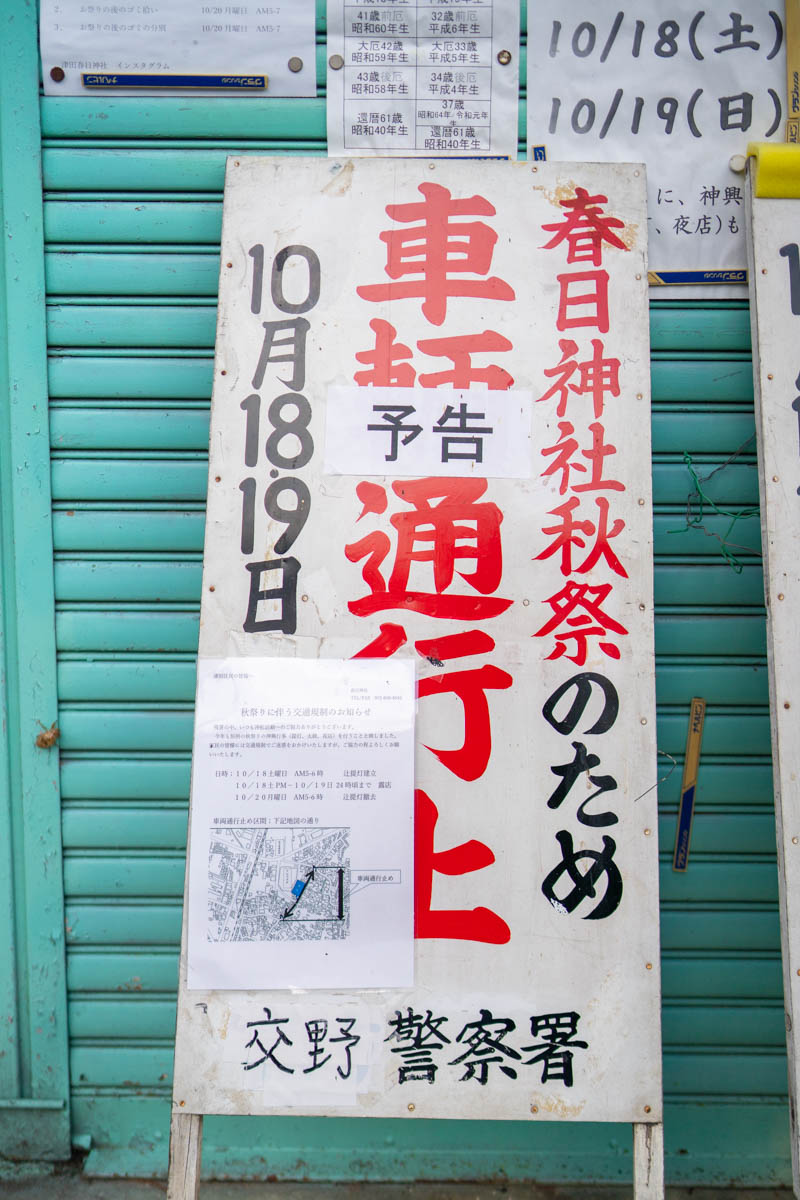 2. お祭りの後のゴミ拾い 10/20月曜日 AM5-7
3. お祭りの後のゴミの分別 10/20月曜日 AM5-7
津田春日神社 インスタグラム
41歳前厄
昭和60年生
32歳前厄
平成6年生
大厄42歳
昭和59年生
大厄33歳
平成5年生
43歳後厄
昭和58年生
34歳後厄
平成4年生
37歳
昭和64年・令和元年
生
還暦61歳
昭和40年生
還暦61歳
昭和40年生
10/18(土)
10/19(日)
に、神輿
、夜店)も
春日神社秋祭のため
車輌通行止
予告
10月18.19日
津田住民の皆様へ
春日神社
秋祭りに伴う交通規制のお知らせ
日時:10/18土曜日 AM5-6時 辻提灯建立
10/18土PM-10/19日24時頃まで 露店
10/20月曜日 AM5-6時 辻提灯撤去
車両通行止め区間:下記地図の通り
車両通行止め
交野 警察署